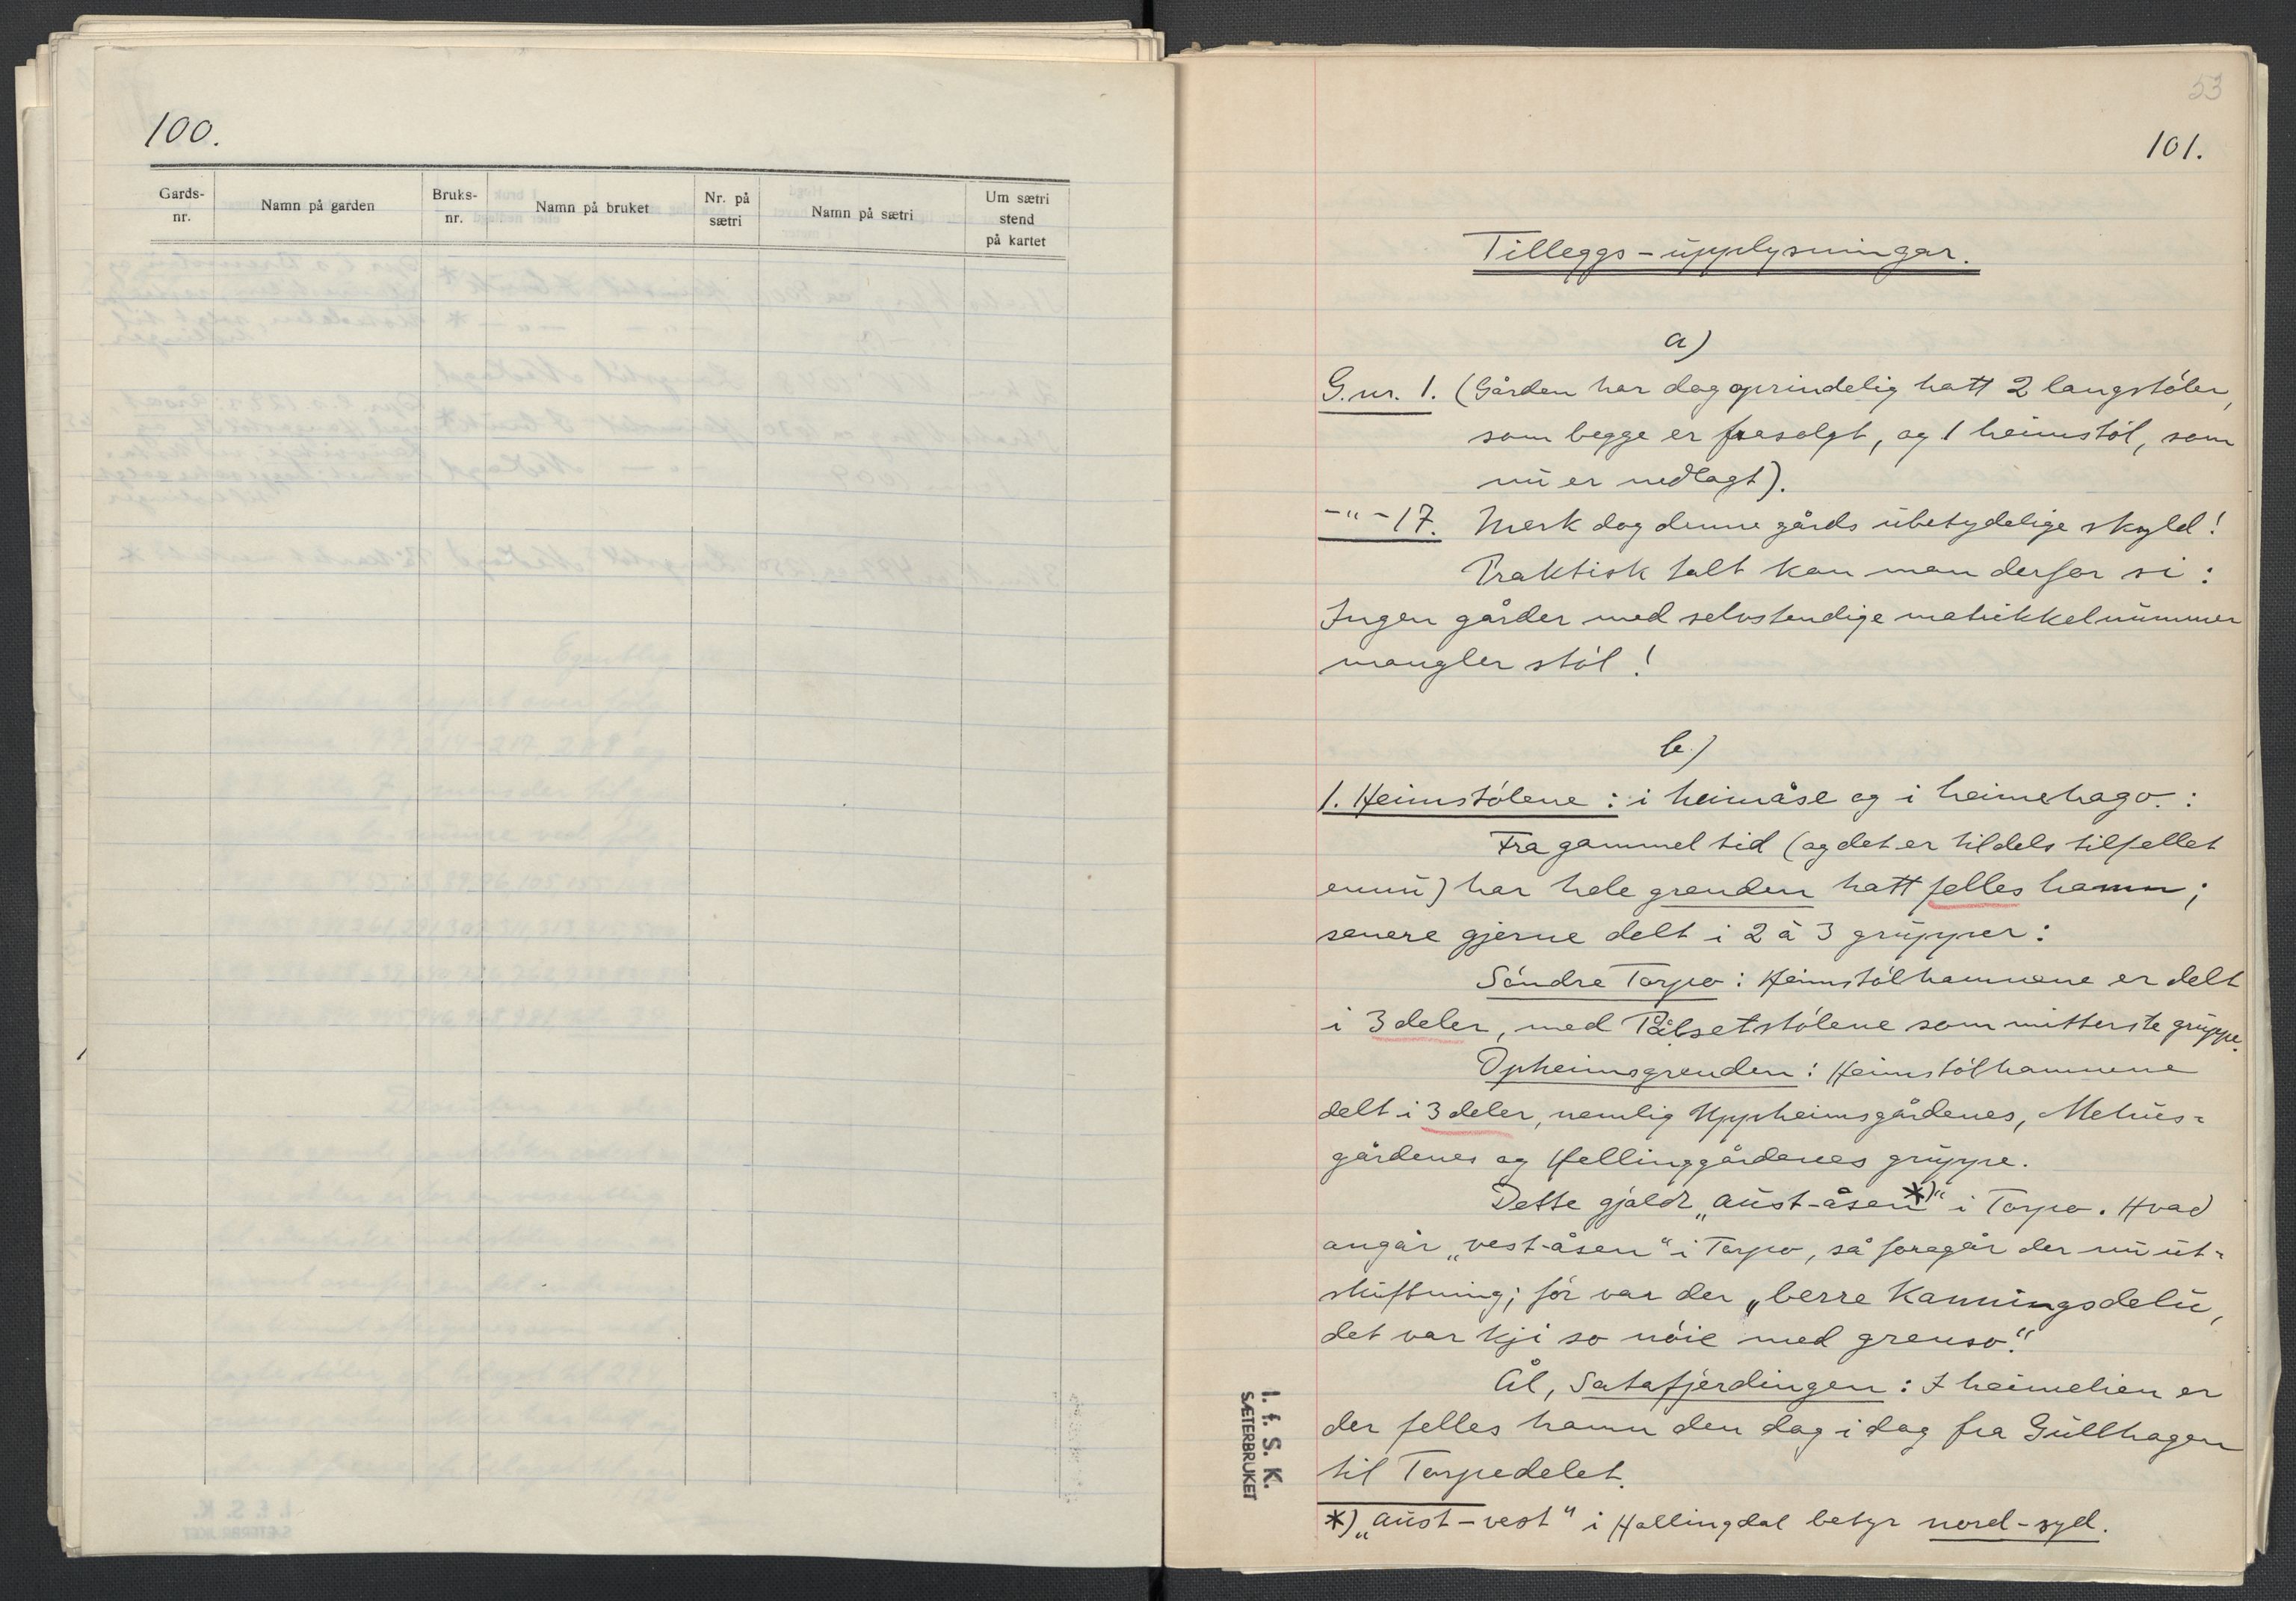 100.
Gards-nr. Namn på garden Bruks-nr. Namn på bruket Nr. på sætri Namn på sætri Um sætri stend på kartet
53
101.
Tilleggs-upplysningar.
a)
G.nr. 1. (Gården har dog oprindelig hatt 2 langstøler,
som begge er frasolgt, og 1 heimstøl, som
nu er nedlagt).
-"-17. Merk dog denne gårds ubetydelige skyld!
Praktisk talt kan man derfor si:
Ingen gårder med selvstendige matrikkelnummer
mangler støl!
b.)
1. Heimstølene: i heimåse og i heimehago.:
Fra gammel tid (og det er tildels tilfellet
ennu) har hele grenden hatt felles hamn;
senere gjerne delt i 2 à 3 grupper:
Søndre Torpo: Heimstølhamnene er delt
i 3 deler, med Pålsetstølene som mitterste gruppe.
Opheimsgrenden: Heimstølhamnene
delt i 3 deler, nemlig Uppheimsgårdenes, Mehus-
gårdenes og Hellinggårdenes gruppe.
Dette gjeldr „aust-åsen*)" i Torpo. Hvad
angår „vest-åsen" i Torpo, så foregår der nu ut-
skiftning; før var der „berre Kanningsdelu,
det var kji so nøie med grenso."
Ål, Satafjerdingen: I heimelien er
der felles hamn den dag i dag fra Gullhagen
til Torpedelet.
*) „aust-vest" i Hallingdal betyr nord-syd.
I. f. S. K.
SÆTERBRUKET